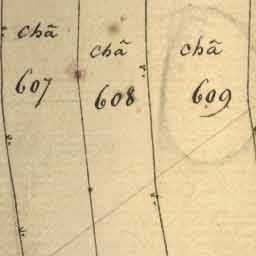 chã
607
chã
608
chã
609